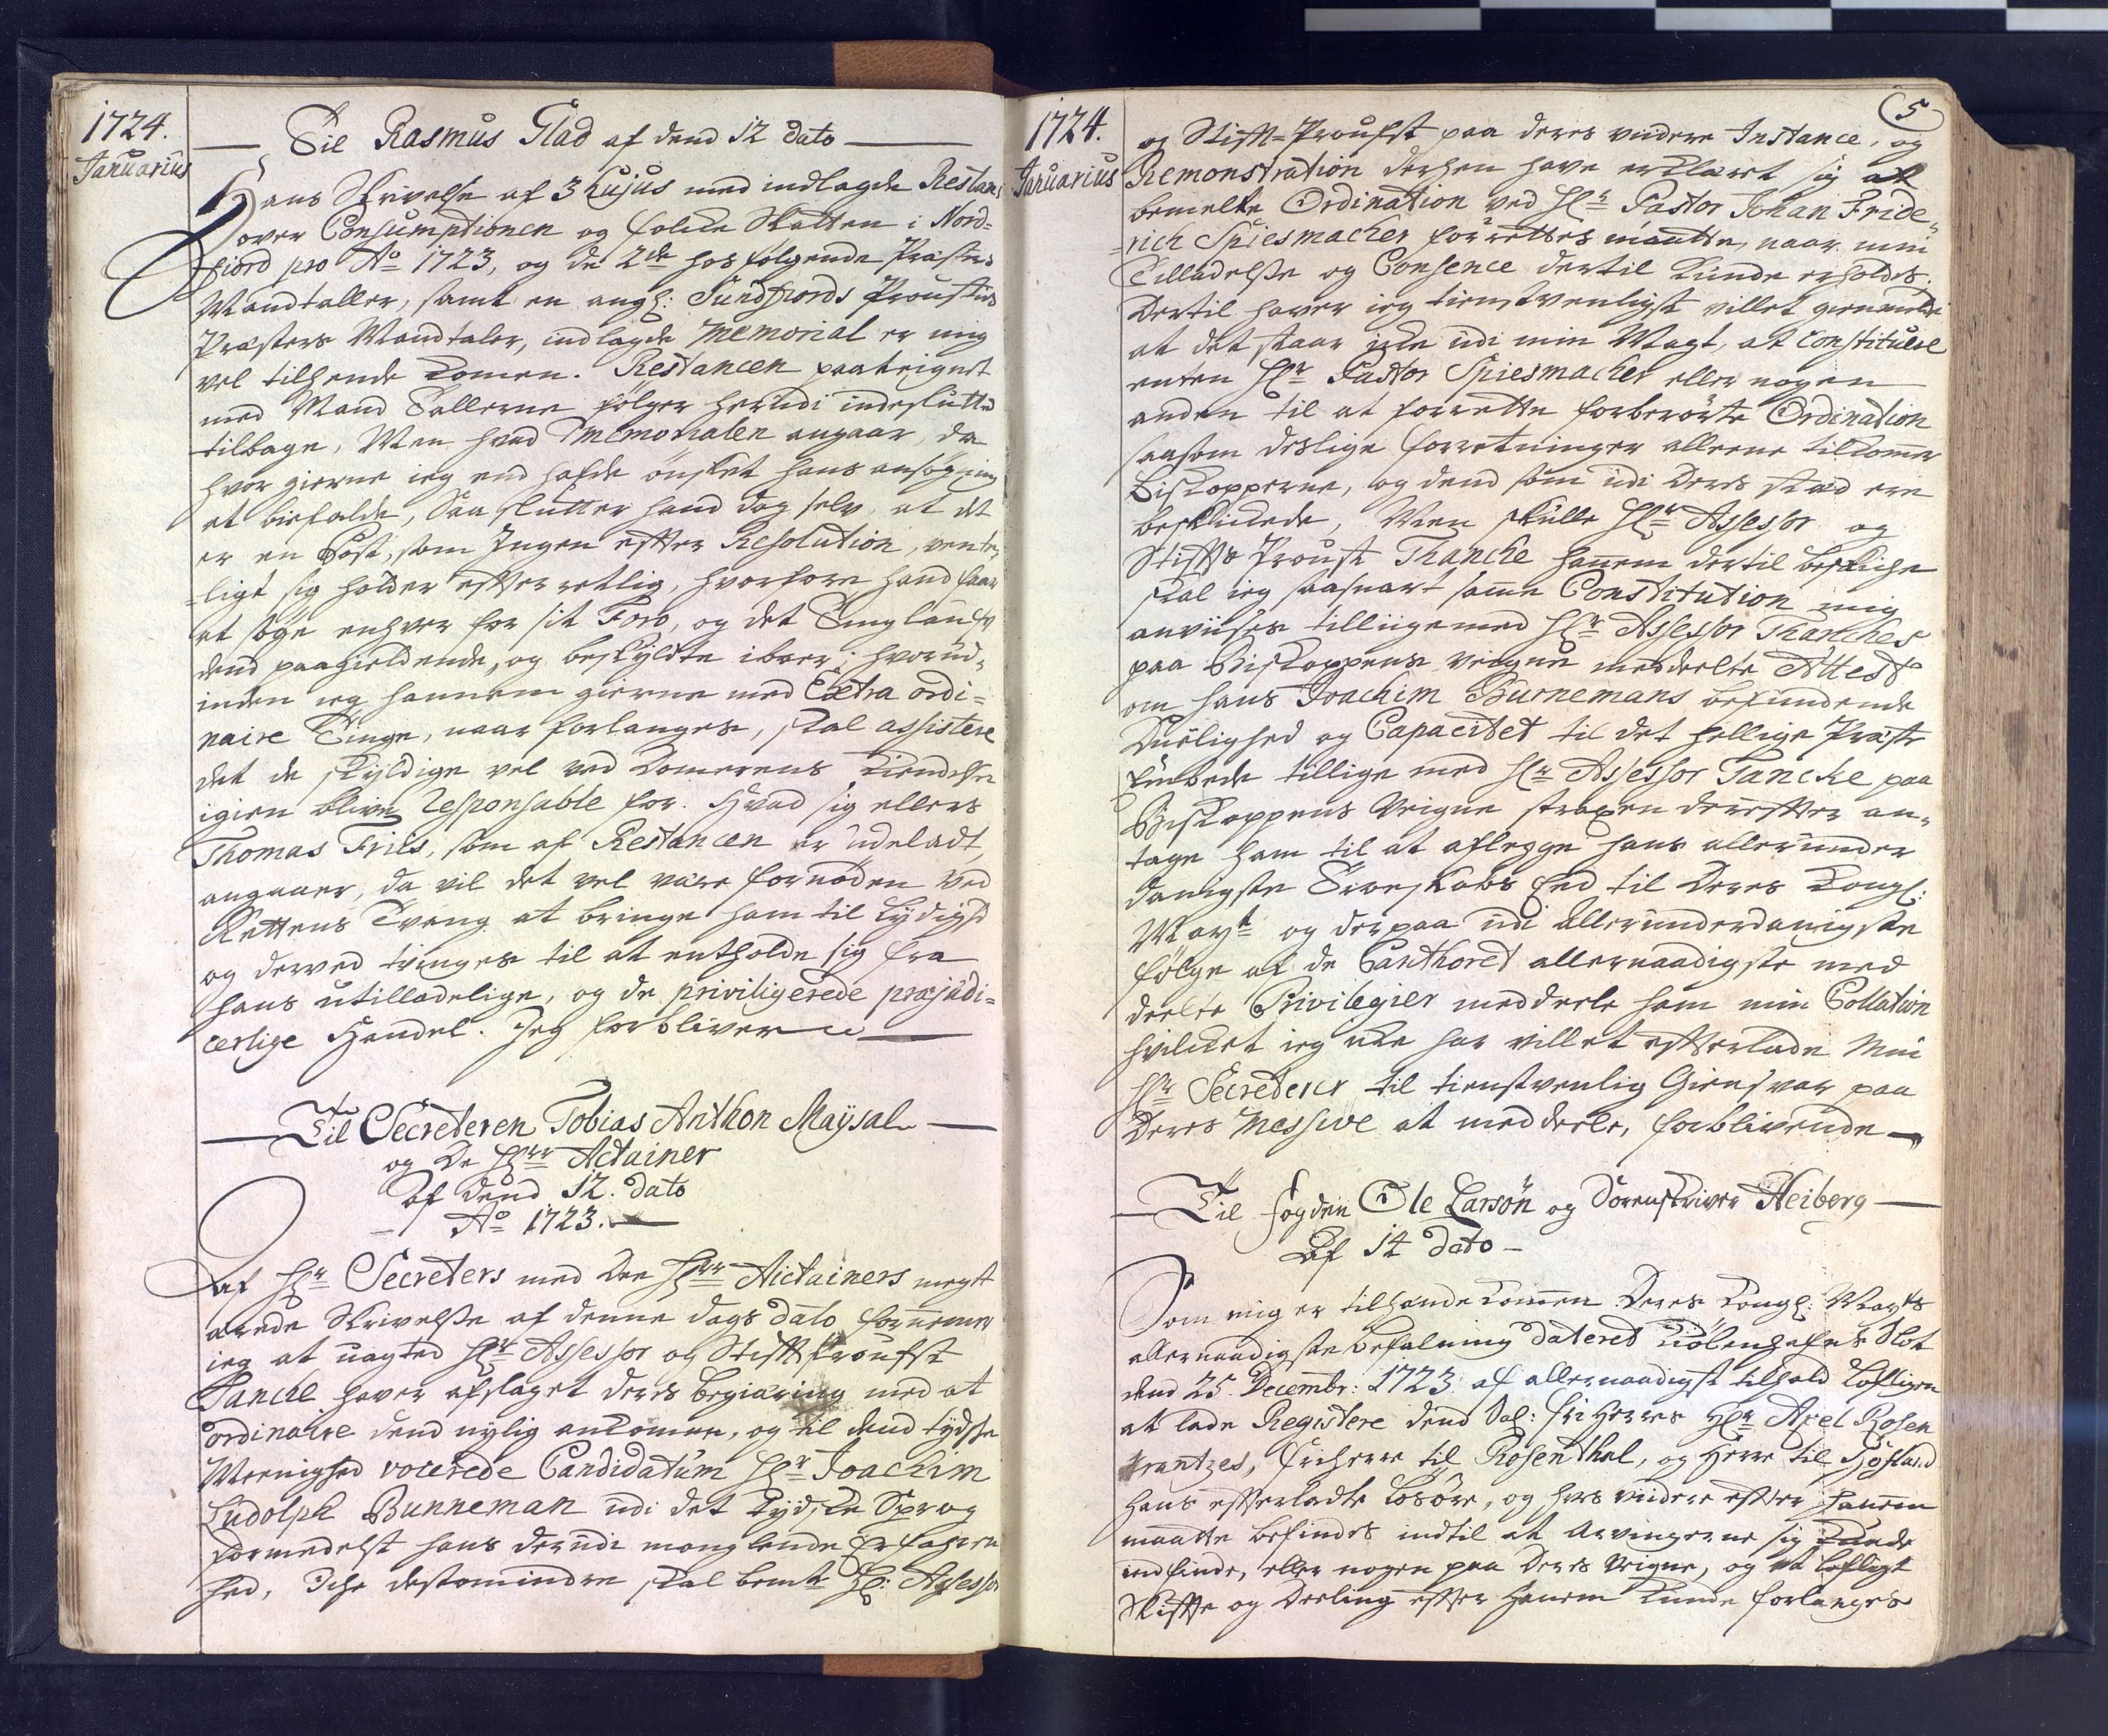 1724.
Januarius
Til Rasmus Glad af dend 12 dato
Hans Skrivelse af 3 hujus med indlagde Restanz
over Consumptionen og folcke Skatten i Nord-
fiord pro Ao 1723, og de 2de hosfølgende Præsters
Mandtaller, samt en angl: Sundfjords Prousties
Præsters Mandtaler, indlagde Memorial er mig
vel tilhende komen. Restancen paateignet
med Mand Tallerne følger herudi indslutted
tilbage, Men hvad Memorialen angaar, da
hvor gierne ieg end hafde ønsket hans ansøgning
at biefalde, Saa slutter hand dog selv, at det
er en Post, som Ingen efter Resolution,
-ligt sig holder efterretlig, hvorfore hand faar
at søge enhver for sit Foro, og det
dend paagieldende, og beskyldte i hvorud-
inden ieg hannem gierne med Extra ordi-
naire Tinge, naar forlanges, skal assistere
det de skyldige vel ved Domerens Kiendelse
igien bliver responsable for. Hvad sig ellers
Thomas Friis, som af Restancen er udeladt,
angaaer, da vil det vel være fornøden ved
Rettens Tvang at bringe ham til Lydighed
og derved tvinges til at entholde sig fra
hans utilladelige, og de priviligerede præjudi-
cerlige Handel. Jeg forbliver
Til Secreteren Tobias Anthon Maysal
og De Hrr Actainer
af dend 12. dato
Ao 1723.
Af Hr Secreters med Der Hrr Aictainers megt
ærede Skrivelse af denne dags dato fornemmer
ieg at uagted Hr Assessor og Stiftsproufst
Tancke haver afslaget deres begiæring med at
ordinaire dend nylig ankomne, og til dend tydske
Meenighed vocerede Candidatum Hr Joachim
Ludolph Bunneman udi det tydske Sprog
formedelst hans derudi manglende Erfahren
hed, Icke destomindre skal bemte Hr: Assessor
5
1724.
Januarius
og Stift-Proufst paa deres viidere Instance, og
Remonstration derhen have erklæret sig at
bemelte Ordination ved Hr Pastor Johan Fride-
-rich Spiesmacher forrettes maatte, naar min
Tilladelse og Consence dertil kunde erholdes.
Dertil haver ieg tienstvenligst villet gienmelde
at det staar icke udi min Magt, at Constituere
enten Hr Pastor Spiesmacher eller nogen
anden til at forrette forberørte Ordination
saasom deslige forretninger alleene tilkommer
Biskopperne, og dend som udi deres sted ere
beskickede, Men skulle Hr Assessor og
Stifts Proust Thancke hannem dertil beskicke
skal ieg saasnart samme Constitution mig
anviises tilligemed Hr Assessor Thanches
paa Biskoppens veigne meddeelte Attest
om hans Joachim Burnemans befundende
Duelighed og Capacitet til det hellige Præste
Embede tillige med Hr Assessor Tancke paa
Biskoppens Veigne straxen derefter an-
tage ham til at aflegge hans allerunder
danigste Troeskabs Eed til Deres Kongl:
Mayt og derpaa udi Allerunderdanigste
følge af de Canthoret allernaadigste med
deelte Privilegier meddeele ham min Collation
hvilcket ieg icke har villet efterlade Min
Hr Secreterer til tienstvenlig Giensvar paa
Deres Messive at meddeele, forblivende
Til fogden Ole Larsøn og Sorenskriver Heiberg
Af 14 dato
Som mig er tilhænde kommen Deres Kongl: Mayts
allernaadigste befalning dateret Kiøbenhafns Slot
dend 25 Decembr: 1723 af allernaadigst tilhold
at lade Registere dend Sal: friHerres Hr Axel Rosen
krantzes, friherre til Rosenthal, og Herre til
hans efterladte Løsøre, og hves viidere efter hannem
maatte befindes indtil at Arvingerne sig kunde
indfinde, eller nogen paa Deres Veigne, og et lovligt
Skifte og Deeling efter Hannem kunde forlanges